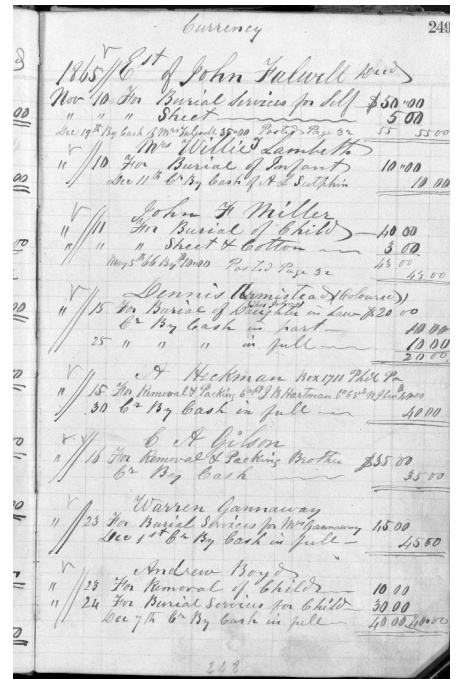 Currency
249
1865 Est of John Falwell Decd
Nov 10 For Burial Services for Self $50.00
" " " Sheet 5 00
Dec 19th By Cash of Mrs Falwell 35.00 Posted Page 32 55 55 00
Mrs Willie J Lambeth
" 10 For Burial of Infant 10.00
Dec 11th Cr By Cash of A L Sutphin 10 00
John F Miller
" 11 For Burial of Child 40 00
" " " Sheet & Cotton 3 00
May 5th 66 By 10.00 Posted Page 32 43 00 43 00
Dennis Armistead (Coloured)
" 15 For Burial of Daughter in Law $20 00
Cr By Cash in part 10 00
25 " " " in full 10 00
20 00
A Heckman Box 1711 Phila Pa
" 15 For Removal & Packing J N Hartman 40 00
30 Cr By Cash in full 40 00
C A Gilson
" 16 For Removal & Packing Brother $35 00
Cr By Cash 35 00
Warren Gannaway
" 23 For Burial Services for Mrs Gannaway 45 00
Dec 1st Cr By Cash in full 45 00
Andrew Boyd
" 23 For Removal of Child 10 00
" 24 For Burial Services for Child 30 00
Dec 7th Cr By Cash in full 40 00 40 00
248